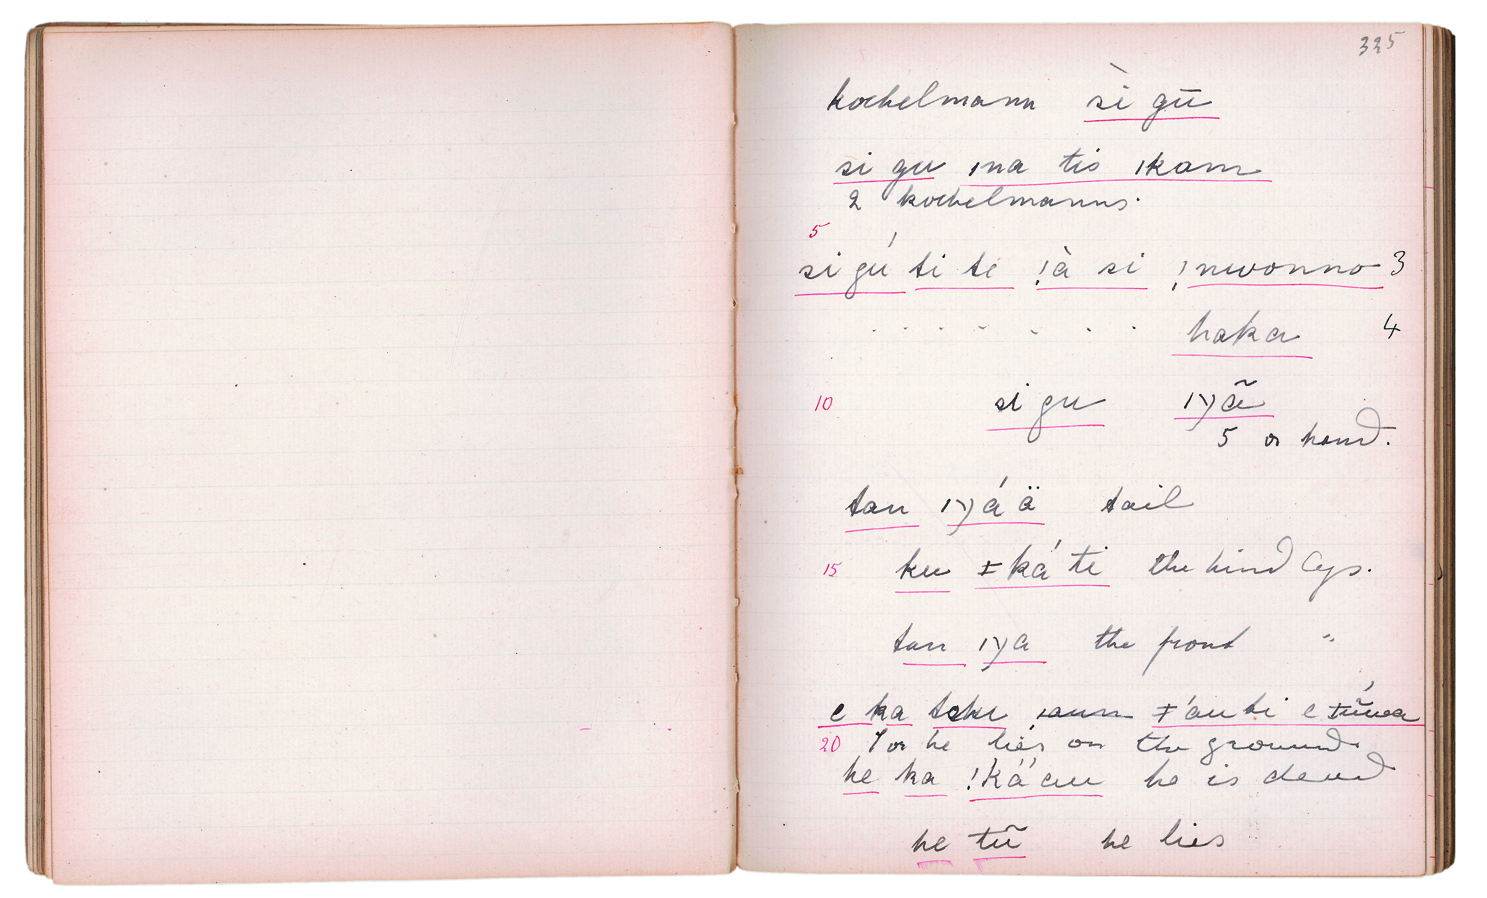 335
kochelmann sì gū
si gu ǀna tis ǀkam
2 kochelmanns.
5
si gú ti te !à si !nwonno 3
. . . . . . . haka 4
10 si gu ǀyã
5 or hand.
tan ǀyá ä tail
15 ku ǂká ti the hind legs.
tan ǀya the front "
e ka ǀaum ǂ'au ti e
20 I or he lies on the ground
he ka !ká'au he is dead
he tũ he lies